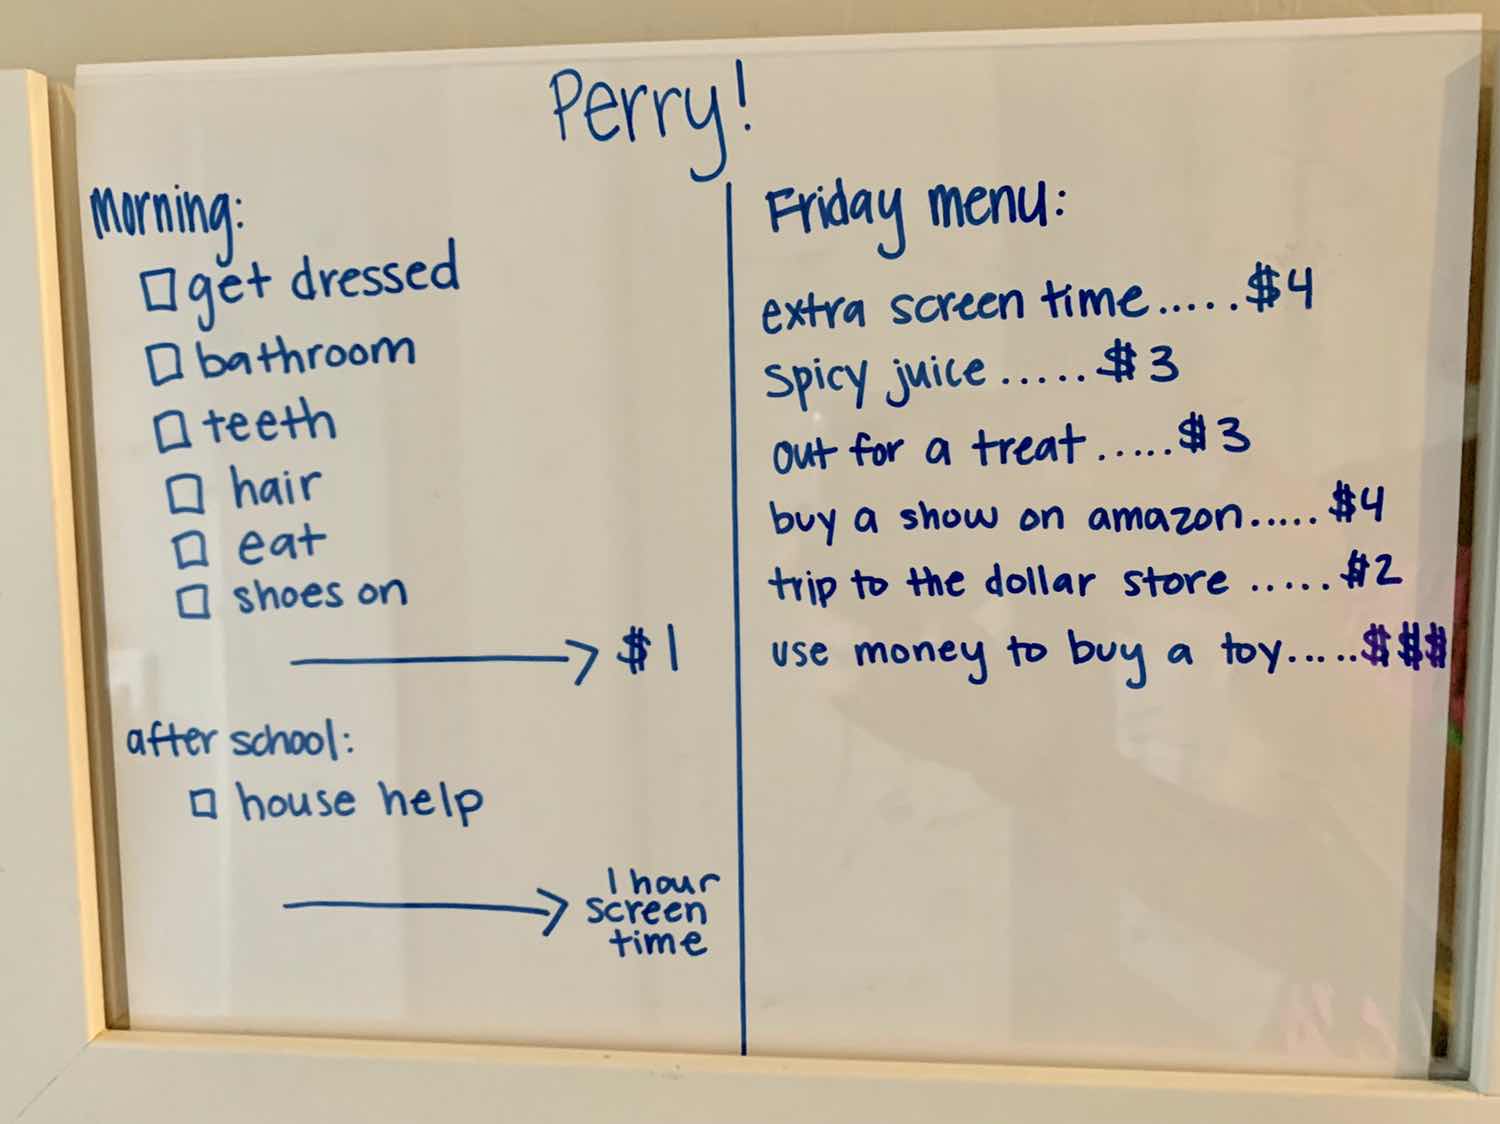 Perry!
Morning:
☐ get dressed
☐ bathroom
☐ teeth
☐ hair
☐ eat
☐ shoes on
→ $1
after school:
☐ house help
→ 1 hour
screen
time
Friday menu:
extra screen time.....$4
spicy juice.....$3
out for a treat.....$3
buy a show on amazon.....$4
trip to the dollar store.....$2
use money to buy a toy.....$$$